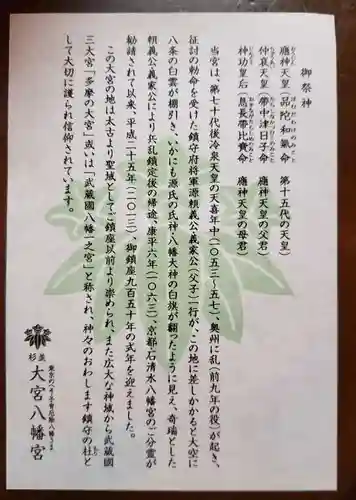 御祭神
應神天皇（品陀和氣命　第十五代の天皇）
仲哀天皇（帶中津日子命　應神天皇の父君）
神功皇后（息長帶比賣命　應神天皇の母君）
当宮は、第七十代後冷泉天皇の天喜年中（一〇五三～五七）、奥州に乱（前九年の役）が起き、
征討の勅命を受けた鎮守府将軍源頼義公義家公（父子）一行が、この地に差しかかると大空に
八条の白雲が棚引き、いかにも源氏の氏神・八幡大神の白旗が翻ったように見え、奇瑞とした
頼義公義家公により兵乱鎮定後の帰途、康平六年（一〇六三）、京都石清水八幡宮のご分霊が
勧請されて以来、平成二十五年（二〇一三）、御鎮座九百五十年の式年を迎えました。
この大宮の地は太古より聖域としてご鎮座以前より崇められ、また広大な神域から武蔵國
三大宮「多摩の大宮」或いは「武蔵國八幡一之宮」と称され、神々のおわします鎮守の杜と
して大切に護られ信仰されています。
東京のへそ 子育厄除八幡さま
杉並 大宮八幡宮